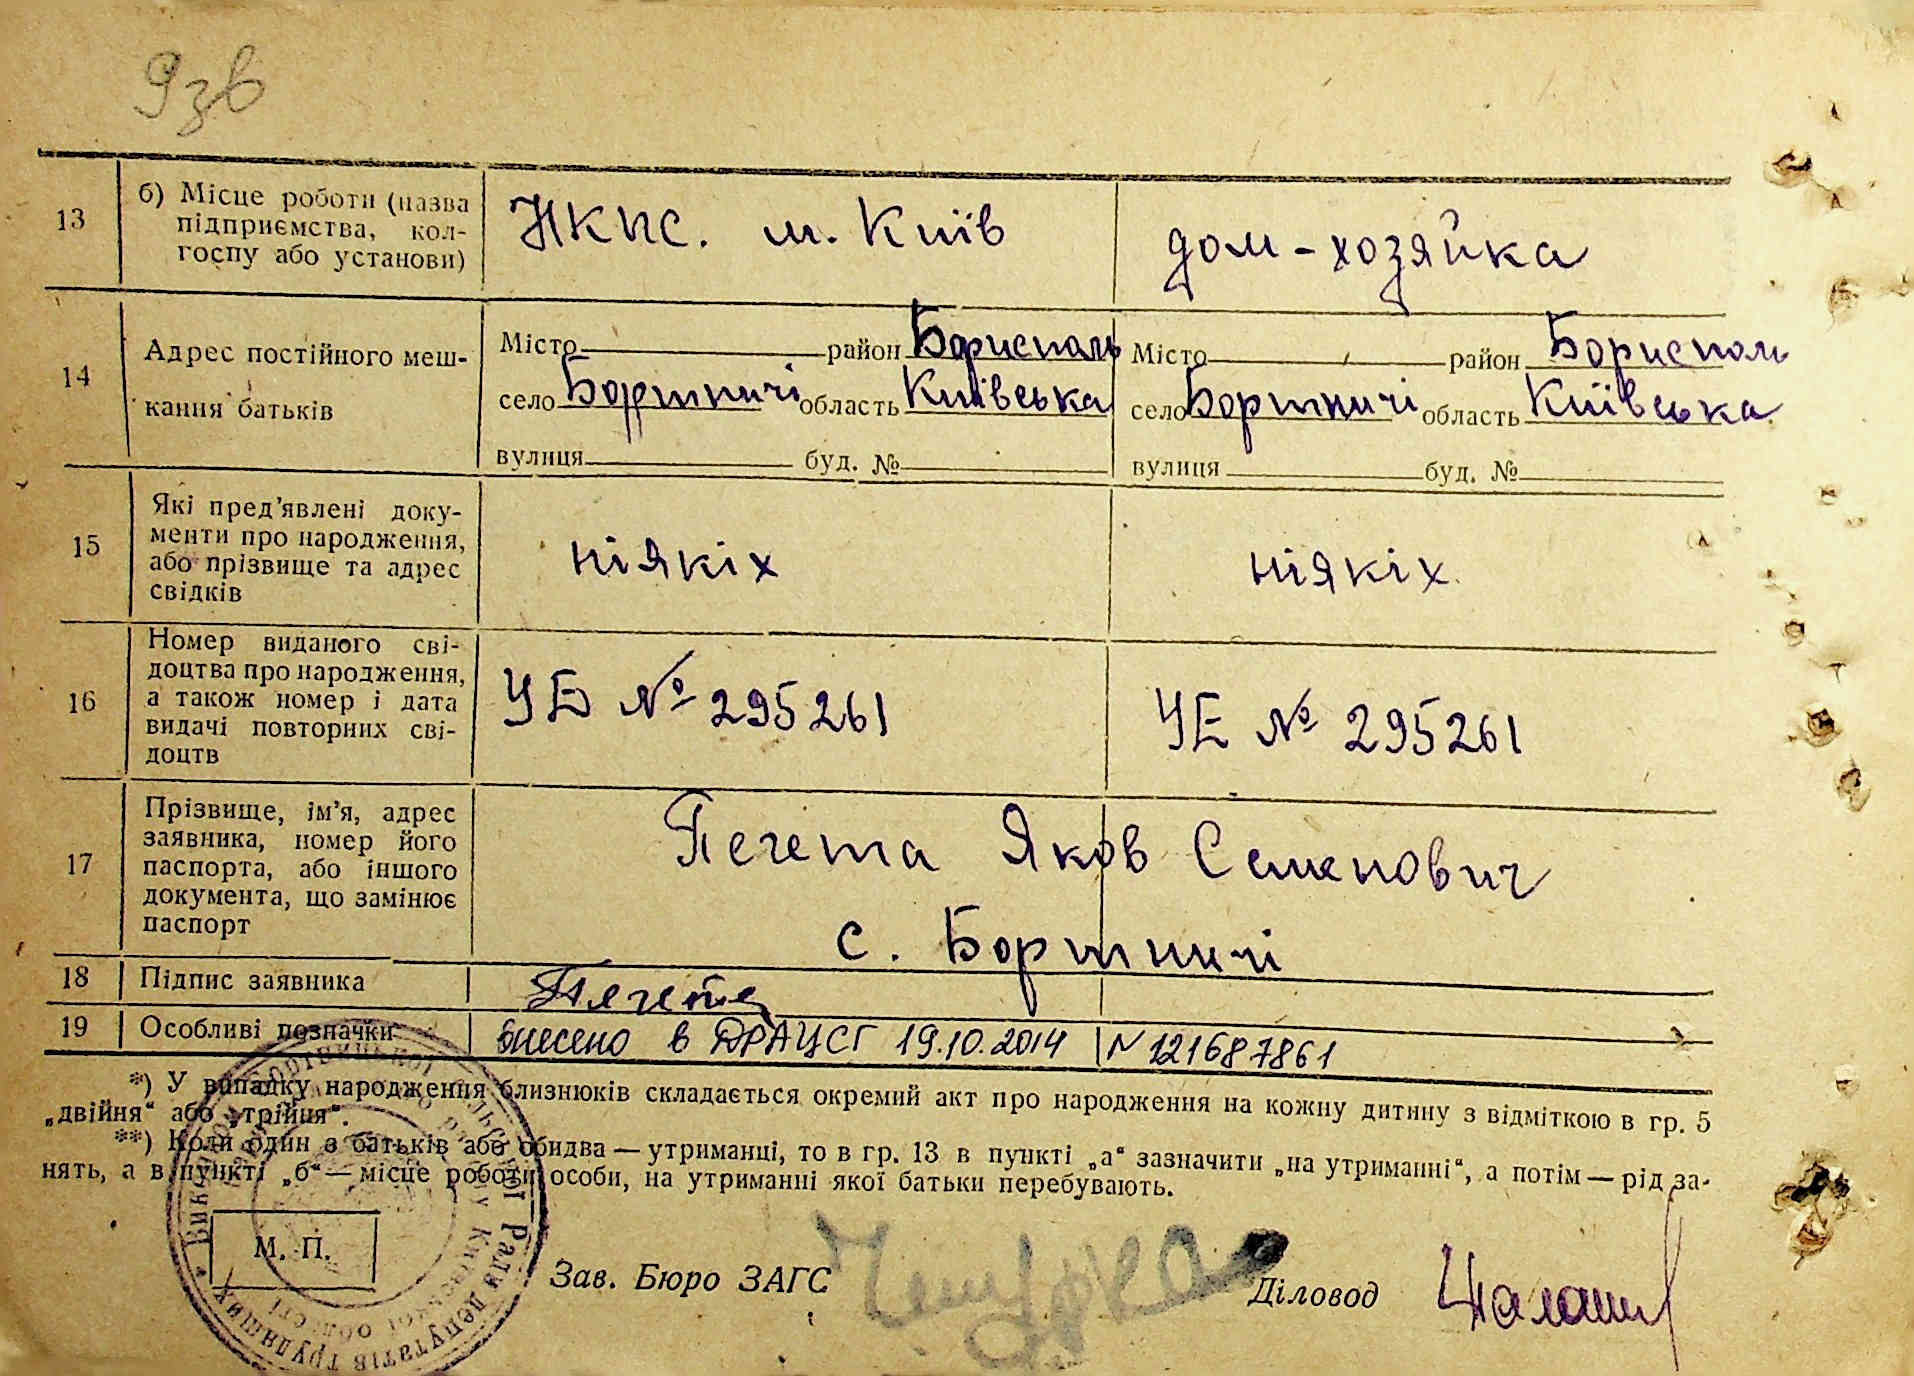 9зв
13
б) Місце роботи (назва
підприємства, кол-
госпу або установи)
НКПС. м. Київ
дом-хозяйка
14
Адрес постійного меш-
кання батьків
Місто район Борисполь
село Бортничі область Київська
вулиця буд. №
Місто район Борисполь
село Бортничі область Київська
вулиця буд. №
15
Які пред'явлені доку-
менти про народження,
або прізвище та адрес
свідків
ніякіх
ніякіх
16
Номер виданого сві-
доцтва про народження,
а також номер і дата
видачі повторних сві-
доцтв
УЕ № 295261
УЕ № 295261
17
Прізвище, ім'я, адрес
заявника, номер його
паспорта, або іншого
документа, що замінює
паспорт
Пегета Яков Семенович
с. Бортничі
18 Підпис заявника
Пегета
19 Особливі позначки
внесено в ДРАЦСГ 19.10.2014 N 121687861
*) У випадку народження близнюків складається окремий акт про народження на кожну дитину з відміткою в гр. 5
„двійня“ або „трійня“.
**) Коли один з батьків або обидва — утриманці, то в гр. 13 в пункті „а“ зазначити „на утриманні“, а потім — рід за-
нять, а в пункті „б“ — місце роботи особи, на утриманні якої батьки перебувають.
М. П.
Зав. Бюро ЗАГС
Діловод
Ради депутатів трудящих